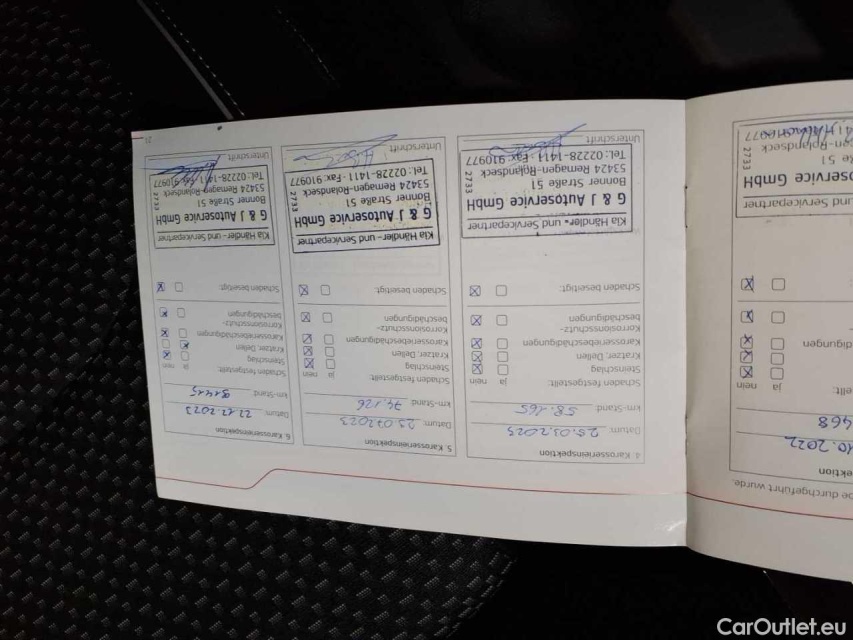 be durchgeführt wurde.
ektion
10.2022
468
ja nein
digungen
und Servicepartner
ervice GmbH
e 51
en-Rolandseck
2733
4. Karosserieinspektion
Datum:
km-Stand: 58.165
Schaden festgestellt: ja nein
Steinschlag
Kratzer, Dellen
Karosseriebeschädigungen
Korrosionsschutz-
beschädigungen
Schaden beseitigt:
Kia Händler- und Servicepartner
G & J Autoservice GmbH
Bonner Straße 51
53424 Remagen-Rolandseck
Tel. 02228-1411 · Fax 910977
2733
Unterschrift
5. Karosserieinspektion
Datum: 25.07.2023
km-Stand: 74.126
Schaden festgestellt: ja nein
Steinschlag
Kratzer, Dellen
Karosseriebeschädigungen
Korrosionsschutz-
beschädigungen
Schaden beseitigt:
Kia Händler- und Servicepartner
G & J Autoservice GmbH
Bonner Straße 51
53424 Remagen-Rolandseck
Tel. 02228-1411 · Fax 910977
2733
Unterschrift
6. Karosserieinspektion
Datum: 22.12.2023
km-Stand:
Schaden festgestellt: ja nein
Steinschlag
Kratzer, Dellen
Karosseriebeschädigungen
Korrosionsschutz-
beschädigungen
Schaden beseitigt:
Kia Händler- und Servicepartner
G & J Autoservice GmbH
Bonner Straße 51
53424 Remagen-Rolandseck
Tel. 02228-1411 · Fax 910977
2733
Unterschrift
21
CarOutlet.eu